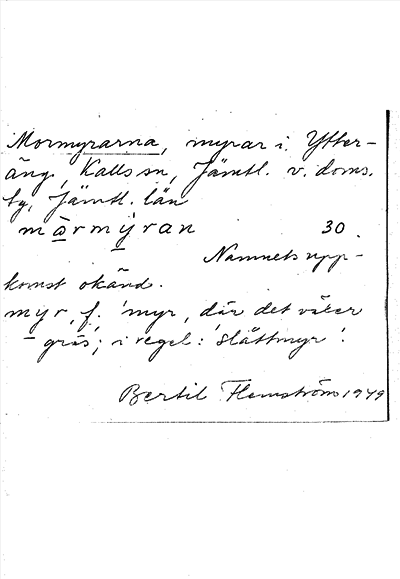 Mormyrarna, myrar i Ytter-
äng, Kalls sn, Jämtl. v. doms.
tg, Jämtl. län
màrmýran 30.
Namnets upp-
komst okänd.
myr, f. 'myr, där det växer
gräs; i regel: 'slåttmyr'.
Bertil Flemström 1949